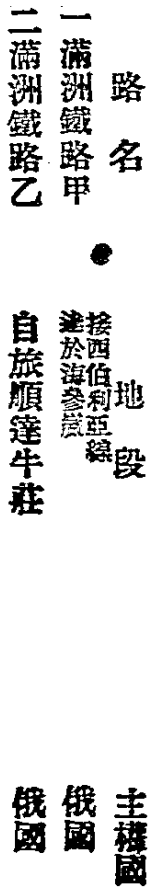 路名 地段 主權國
一滿洲鐵路甲 接西伯利亞綫達於海參崴 俄國
二滿洲鐵路乙 自旅順達牛莊 俄國